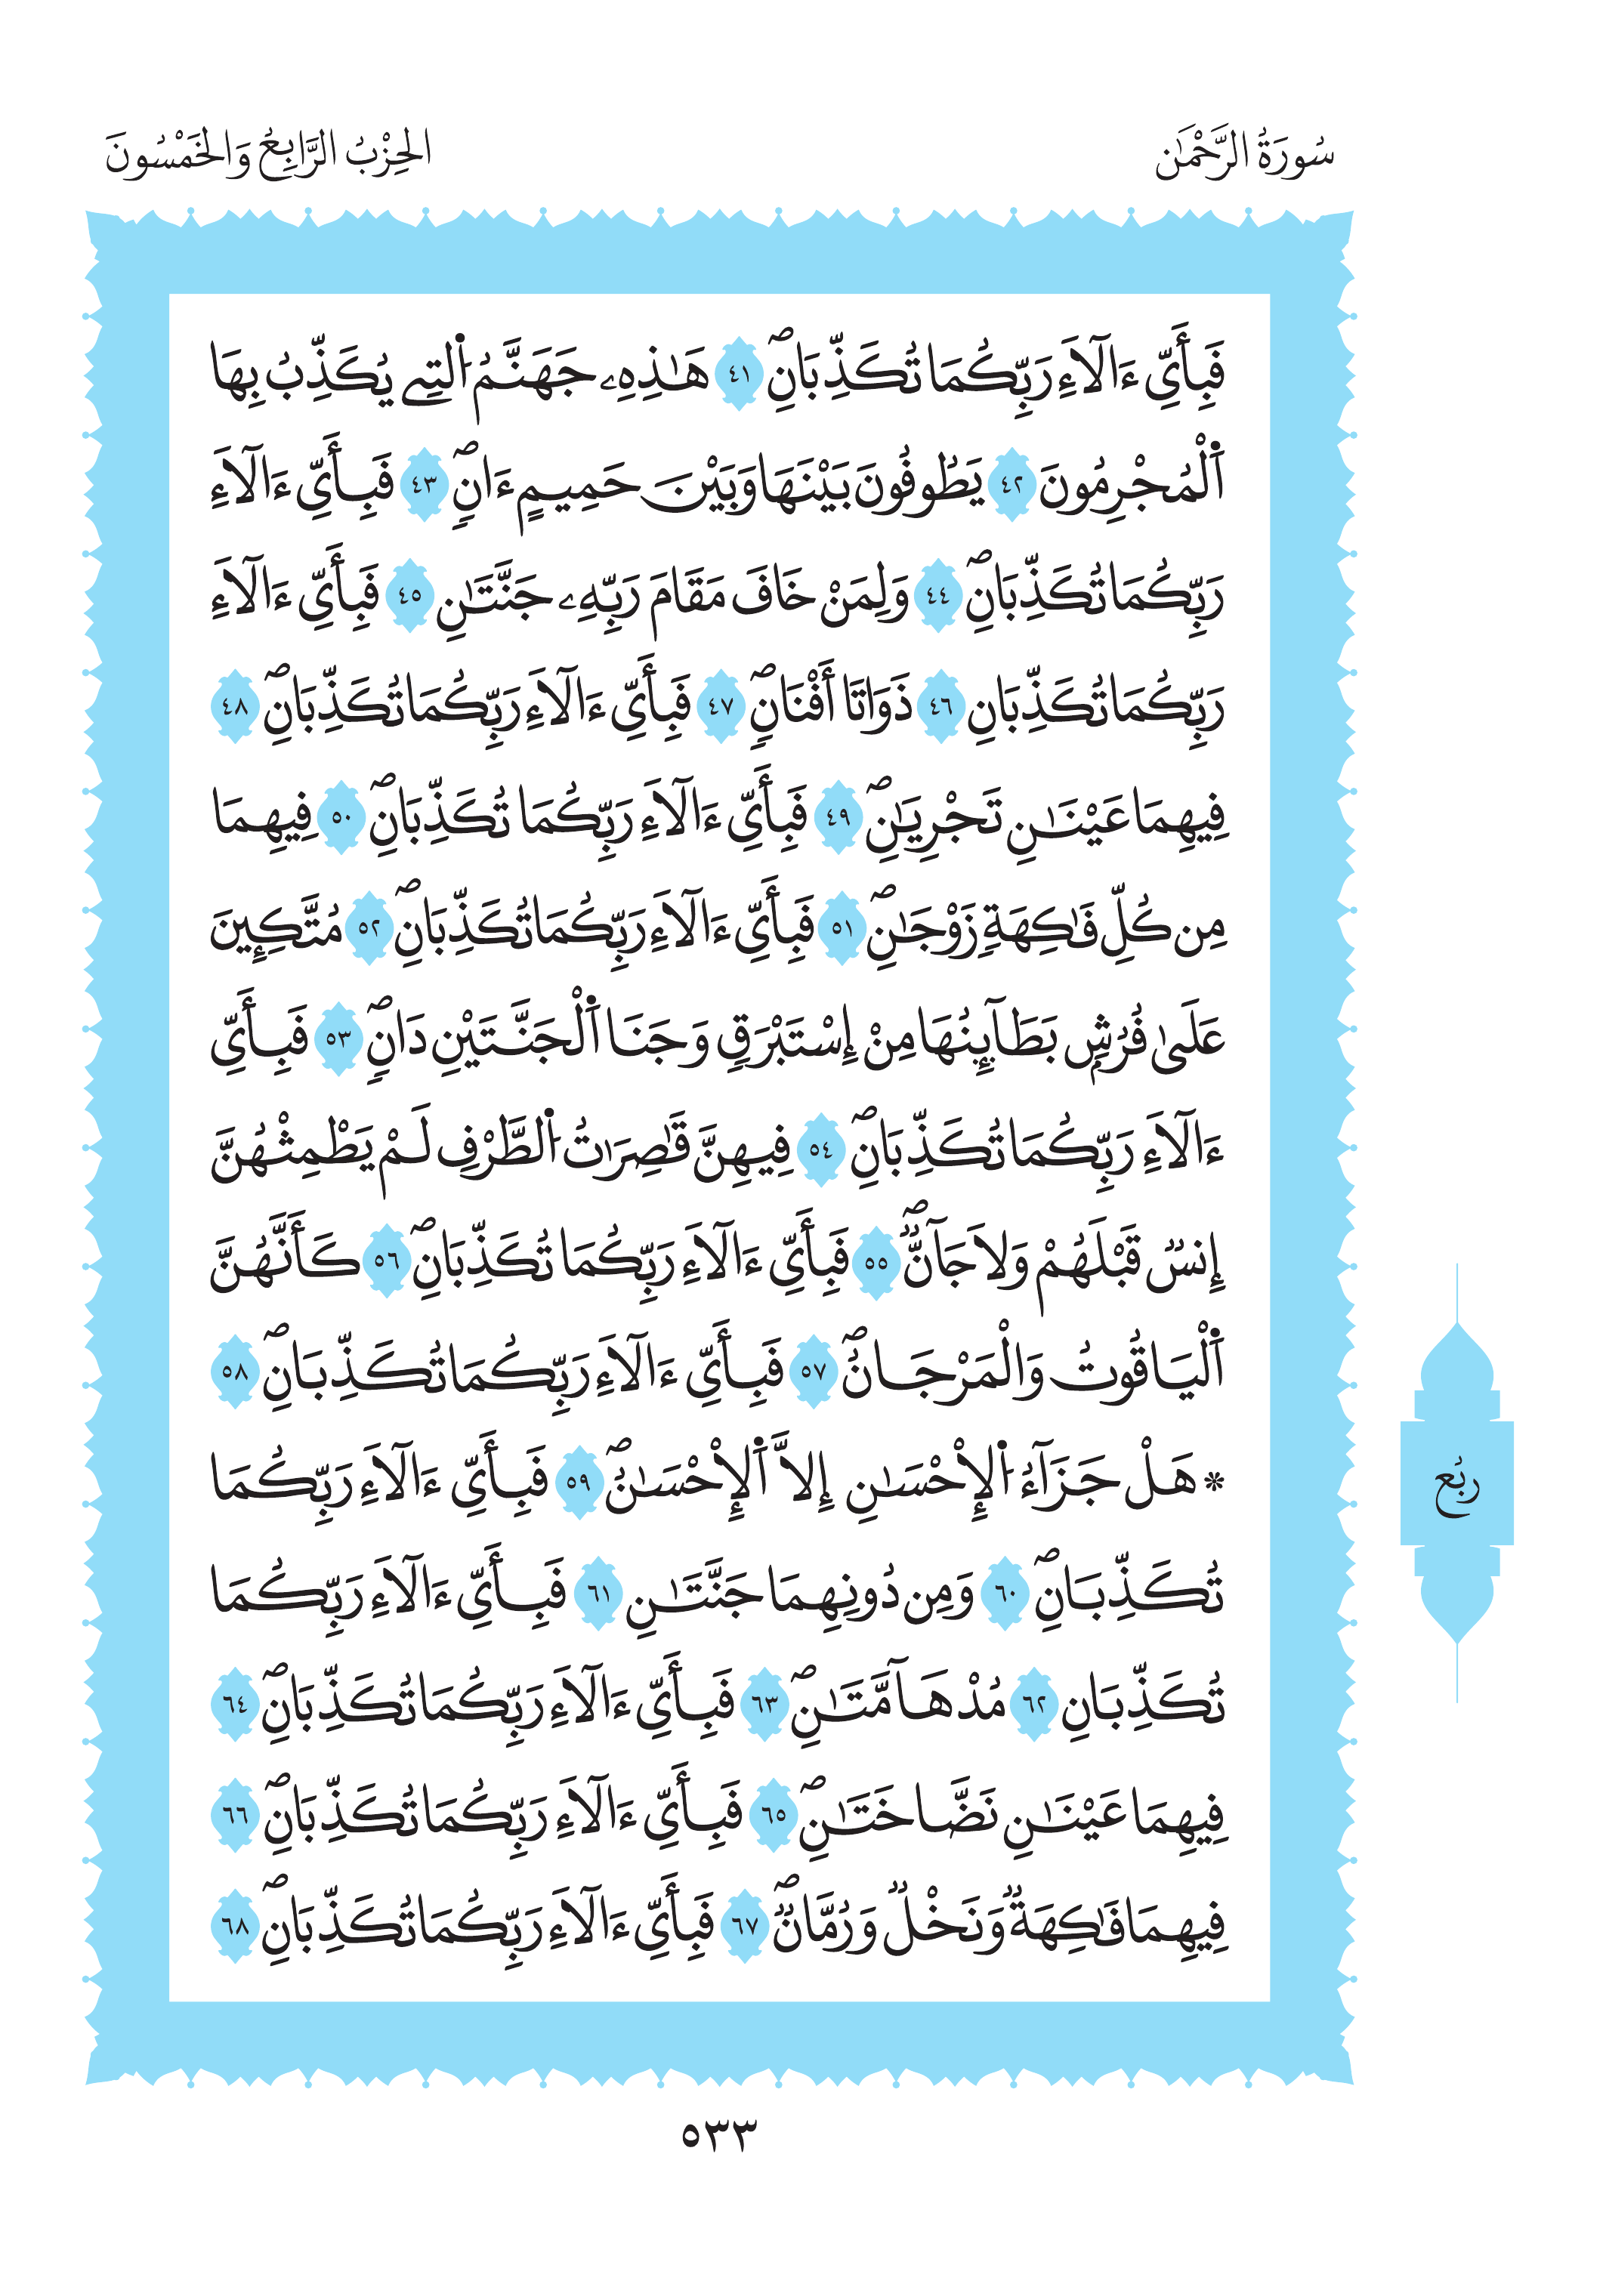 سُورَةُ الرَّحْمَٰن
الحِزْبُ الرَّابِعُ وَالخَمْسُونَ
فَبِأَيِّ ءَالَآءِ رَبِّكُمَا تُكَذِّبَانِۖ ٤١ هَٰذِهِۦ جَهَنَّمُ اُ۬لتِے يُكَذِّبُ بِهَا
اَ۬لْمُجْرِمُونَ ٤٢ يَطُوفُونَ بَيْنَهَا وَبَيْنَ حَمِيمٍ ءَانٖۖ ٤٣ فَبِأَيِّ ءَالَآءِ
رَبِّكُمَا تُكَذِّبَانِۖ ٤٤ وَلِمَنْ خَافَ مَقَامَ رَبِّهِۦ جَنَّتَٰنِ ٤٥ فَبِأَيِّ ءَالَآءِ
رَبِّكُمَا تُكَذِّبَانِ ٤٦ ذَوَاتَا أَفْنَانٖۖ ٤٧ فَبِأَيِّ ءَالَآءِ رَبِّكُمَا تُكَذِّبَانِۖ ٤٨
فِيهِمَا عَيْنَٰنِ تَجْرِيَٰنِۖ ٤٩ فَبِأَيِّ ءَالَآءِ رَبِّكُمَا تُكَذِّبَانِۖ ٥٠ فِيهِمَا
مِن كُلِّ فَٰكِهَةٖ زَوْجَٰنِۖ ٥١ فَبِأَيِّ ءَالَآءِ رَبِّكُمَا تُكَذِّبَانِۖ ٥٢ مُتَّكِـِٕينَ
عَلَىٰ فُرُشِۢ بَطَآئِنُهَا مِنْ إِسْتَبْرَقٖ وَجَنَا اَ۬لْجَنَّتَيْنِ دَانٖۖ ٥٣ فَبِأَيِّ
ءَالَآءِ رَبِّكُمَا تُكَذِّبَانِۖ ٥٤ فِيهِنَّ قَٰصِرَٰتُ اُ۬لطَّرْفِ لَمْ يَطْمِثْهُنَّ
إِنسٞ قَبْلَهُمْ وَلَا جَآنّٞۖ ٥٥ فَبِأَيِّ ءَالَآءِ رَبِّكُمَا تُكَذِّبَانِۖ ٥٦ كَأَنَّهُنَّ
اَ۬لْيَاقُوتُ وَالْمَرْجَانُۖ ٥٧ فَبِأَيِّ ءَالَآءِ رَبِّكُمَا تُكَذِّبَانِۖ ٥٨
* هَلْ جَزَآءُ اُ۬لْإِحْسَٰنِ إِلَّا اَ۬لْإِحْسَٰنُۖ ٥٩ فَبِأَيِّ ءَالَآءِ رَبِّكُمَا
تُكَذِّبَانِۖ ٦٠ وَمِن دُونِهِمَا جَنَّتَٰنِ ٦١ فَبِأَيِّ ءَالَآءِ رَبِّكُمَا
تُكَذِّبَانِ ٦٢ مُدْهَآمَّتَٰنِۖ ٦٣ فَبِأَيِّ ءَالَآءِ رَبِّكُمَا تُكَذِّبَانِۖ ٦٤
فِيهِمَا عَيْنَٰنِ نَضَّاخَتَٰنِۖ ٦٥ فَبِأَيِّ ءَالَآءِ رَبِّكُمَا تُكَذِّبَانِۖ ٦٦
فِيهِمَا فَٰكِهَةٞ وَنَخْلٞ وَرُمَّانٞۖ ٦٧ فَبِأَيِّ ءَالَآءِ رَبِّكُمَا تُكَذِّبَانِۖ ٦٨
رُبُع
٥٣٣